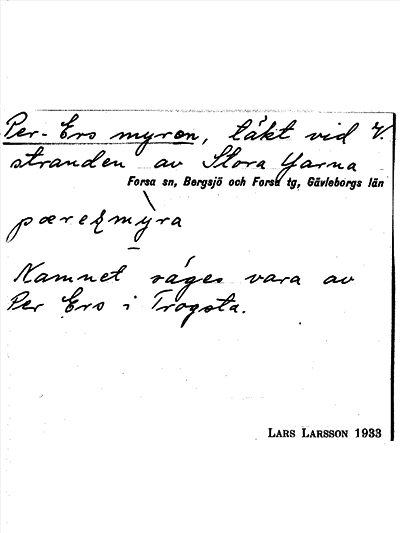 Per-Ers myren, läkt vid V.
stranden av Stora Yarna
Forsa sn, Bergsjö och Forsa tg, Gävleborgs län
pæreʀmyra
Namnet säges vara av
Per Ers i Trogsta.
LARS LARSSON 1933